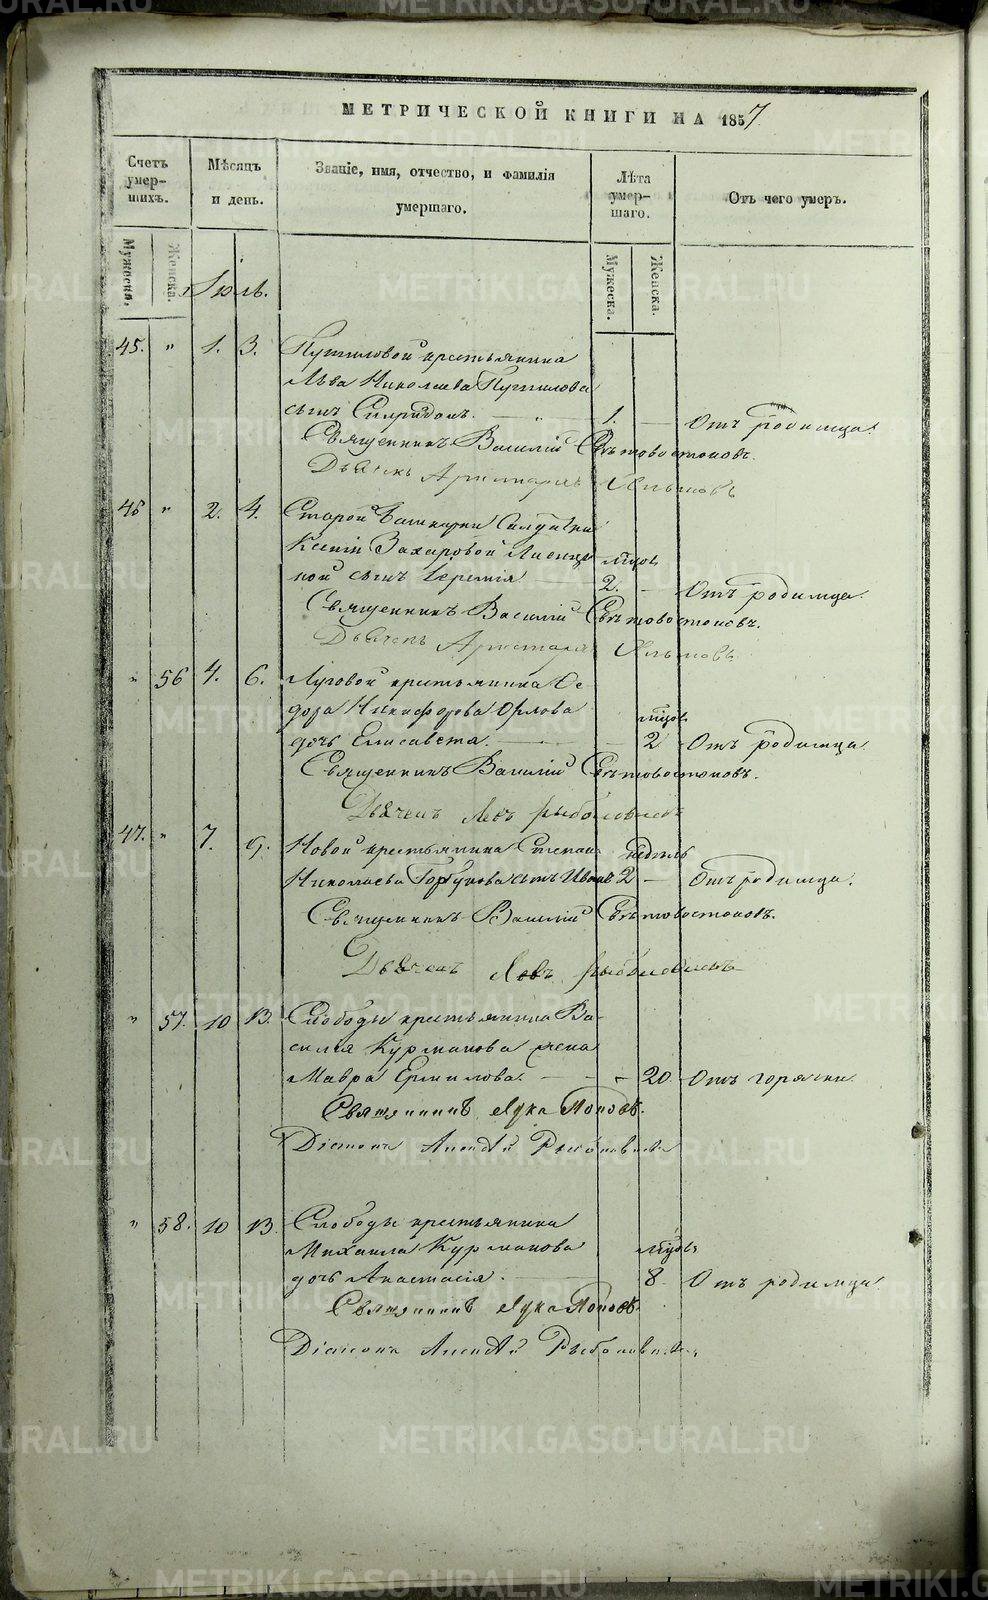 МЕТРИЧЕСКОЙ КНИГИ НА 1857
Счетъ умер- шихъ.
Мѣсяцъ и день.
Званіе, имя, отчество, и фамилія умершаго.
Лѣта умер- шаго.
Отъ чего умеръ.
Мужеска.
Женска.
Мужеска.
Женска.
Іюль.
45. " 1. 3. Путиловой крестьянина
Льва Николаева Путилова
сынъ Спиридонъ. 1. — Отъ родимца.
Священникъ Василій Свѣтовостоковъ.
Дьячекъ Аристархъ
46 " 2. 4. Старой Башкарки Солдатки
Ксеніи Захаровой мѣсцъ
ной сынъ Іеремія 2. — Отъ родимца.
Священникъ Василій Свѣтовостоковъ.
Дьячекъ Аристархъ
" 56 4. 6. Луговой крестьянина Ѳе-
дора Никифорова Орлова мѣсцъ
дочь Елисавета. — 2 Отъ родимца.
Священникъ Василій Свѣтовостоковъ.
Дьячекъ Левъ Рыболовлевъ
47. " 7. 9. Новой крестьянина Степана недѣль
Николаева Горбунова сынъ Иванъ 2 — Отъ родимца.
Священникъ Василій Свѣтовостоковъ.
Дьячекъ Левъ Рыболовлевъ
" 57. 10 13. Слободы крестьянина Ва-
силія Курманова жена
Мавра Ермилова. — 20 Отъ горячки.
Священникъ Лука Поповъ.
Діаконъ Рыболовлевъ
" 58. 10 13. Слободы крестьянина
Михаила Курманова мѣсцъ
дочь Анастасія. 8 Отъ родимца.
Священникъ Лука Поповъ.
Діаконъ Рыболовлевъ
METRIKI.GASO-URAL.RU